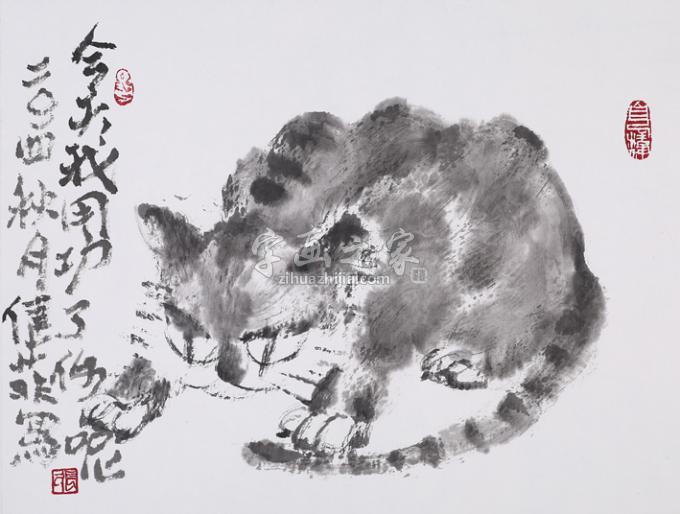 今天我用功了你呢
二〇〇四秋月
寫
張
字画之家
zihuazhijia.com